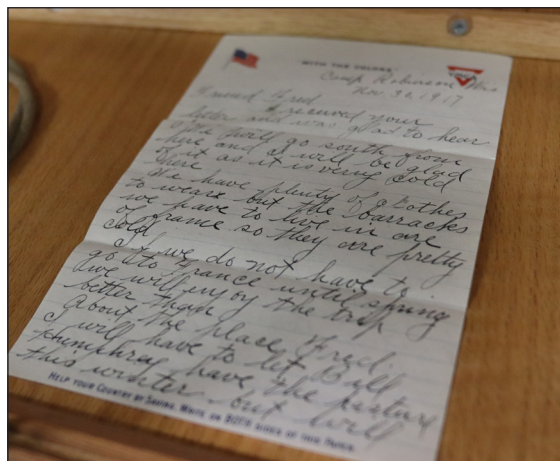 WITH THE COLORS
Camp Robinson Wis
Nov 1917
Friend Fred
I received your
letter and was glad to hear
We will go south from
here and I will be glad
of it as it is very cold
here
We have plenty of clothes
to wear but the barracks
we have to live in are
of frame so they are pretty
cold
If we do not have to
go to France until spring
we will enjoy the trip
better then
About the place Fred.
I will have to let Bill
Humphrey have the pasture
this winter but will
HELP YOUR COUNTRY BY SAVING. WRITE ON BOTH SIDES OF THIS PAPER